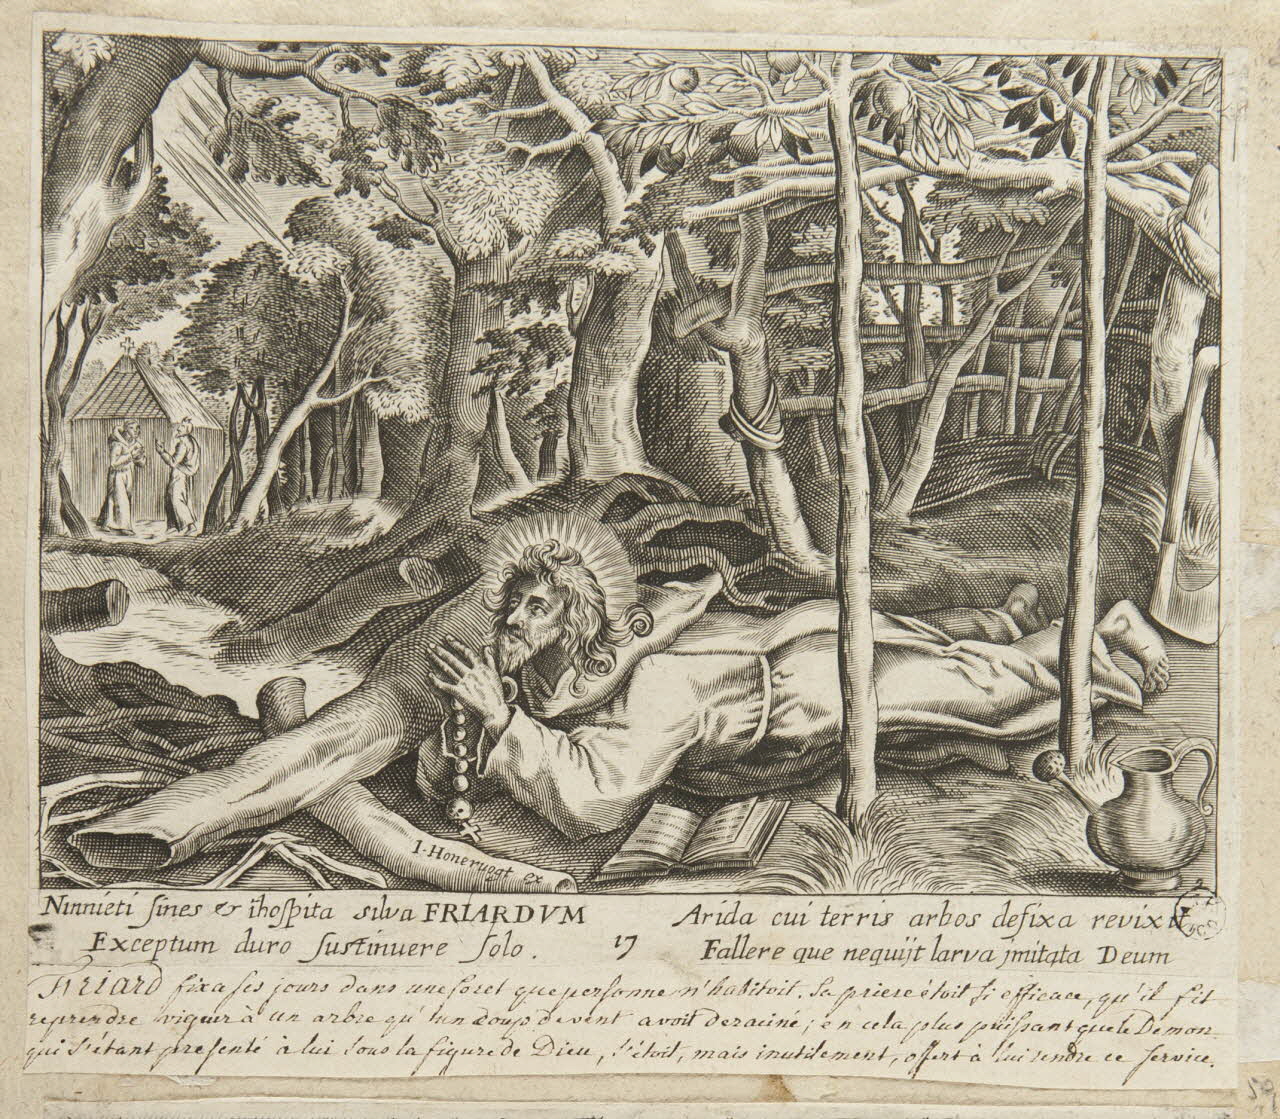 I. Honeruogt ex
Ninnieti fines & ihospita silua FRIARDVM
Exceptum duro sustinuere solo.
17
Arida cui terris arbos defixa reuixit
Fallere que nequijt larva jmitata Deum
FRIARD fixa ses jours dans une foret que personne n'habitoit. Sa priere étoit si efficace, qu'il fit
reprendre vigueur à un arbre qu'un coup de vent avoit deraciné; en cela plus puissant que le Demon
qui s'étant presenté à lui sous la figure de Dieu, s'étoit, mais inutilement, offert à lui rendre ce service.